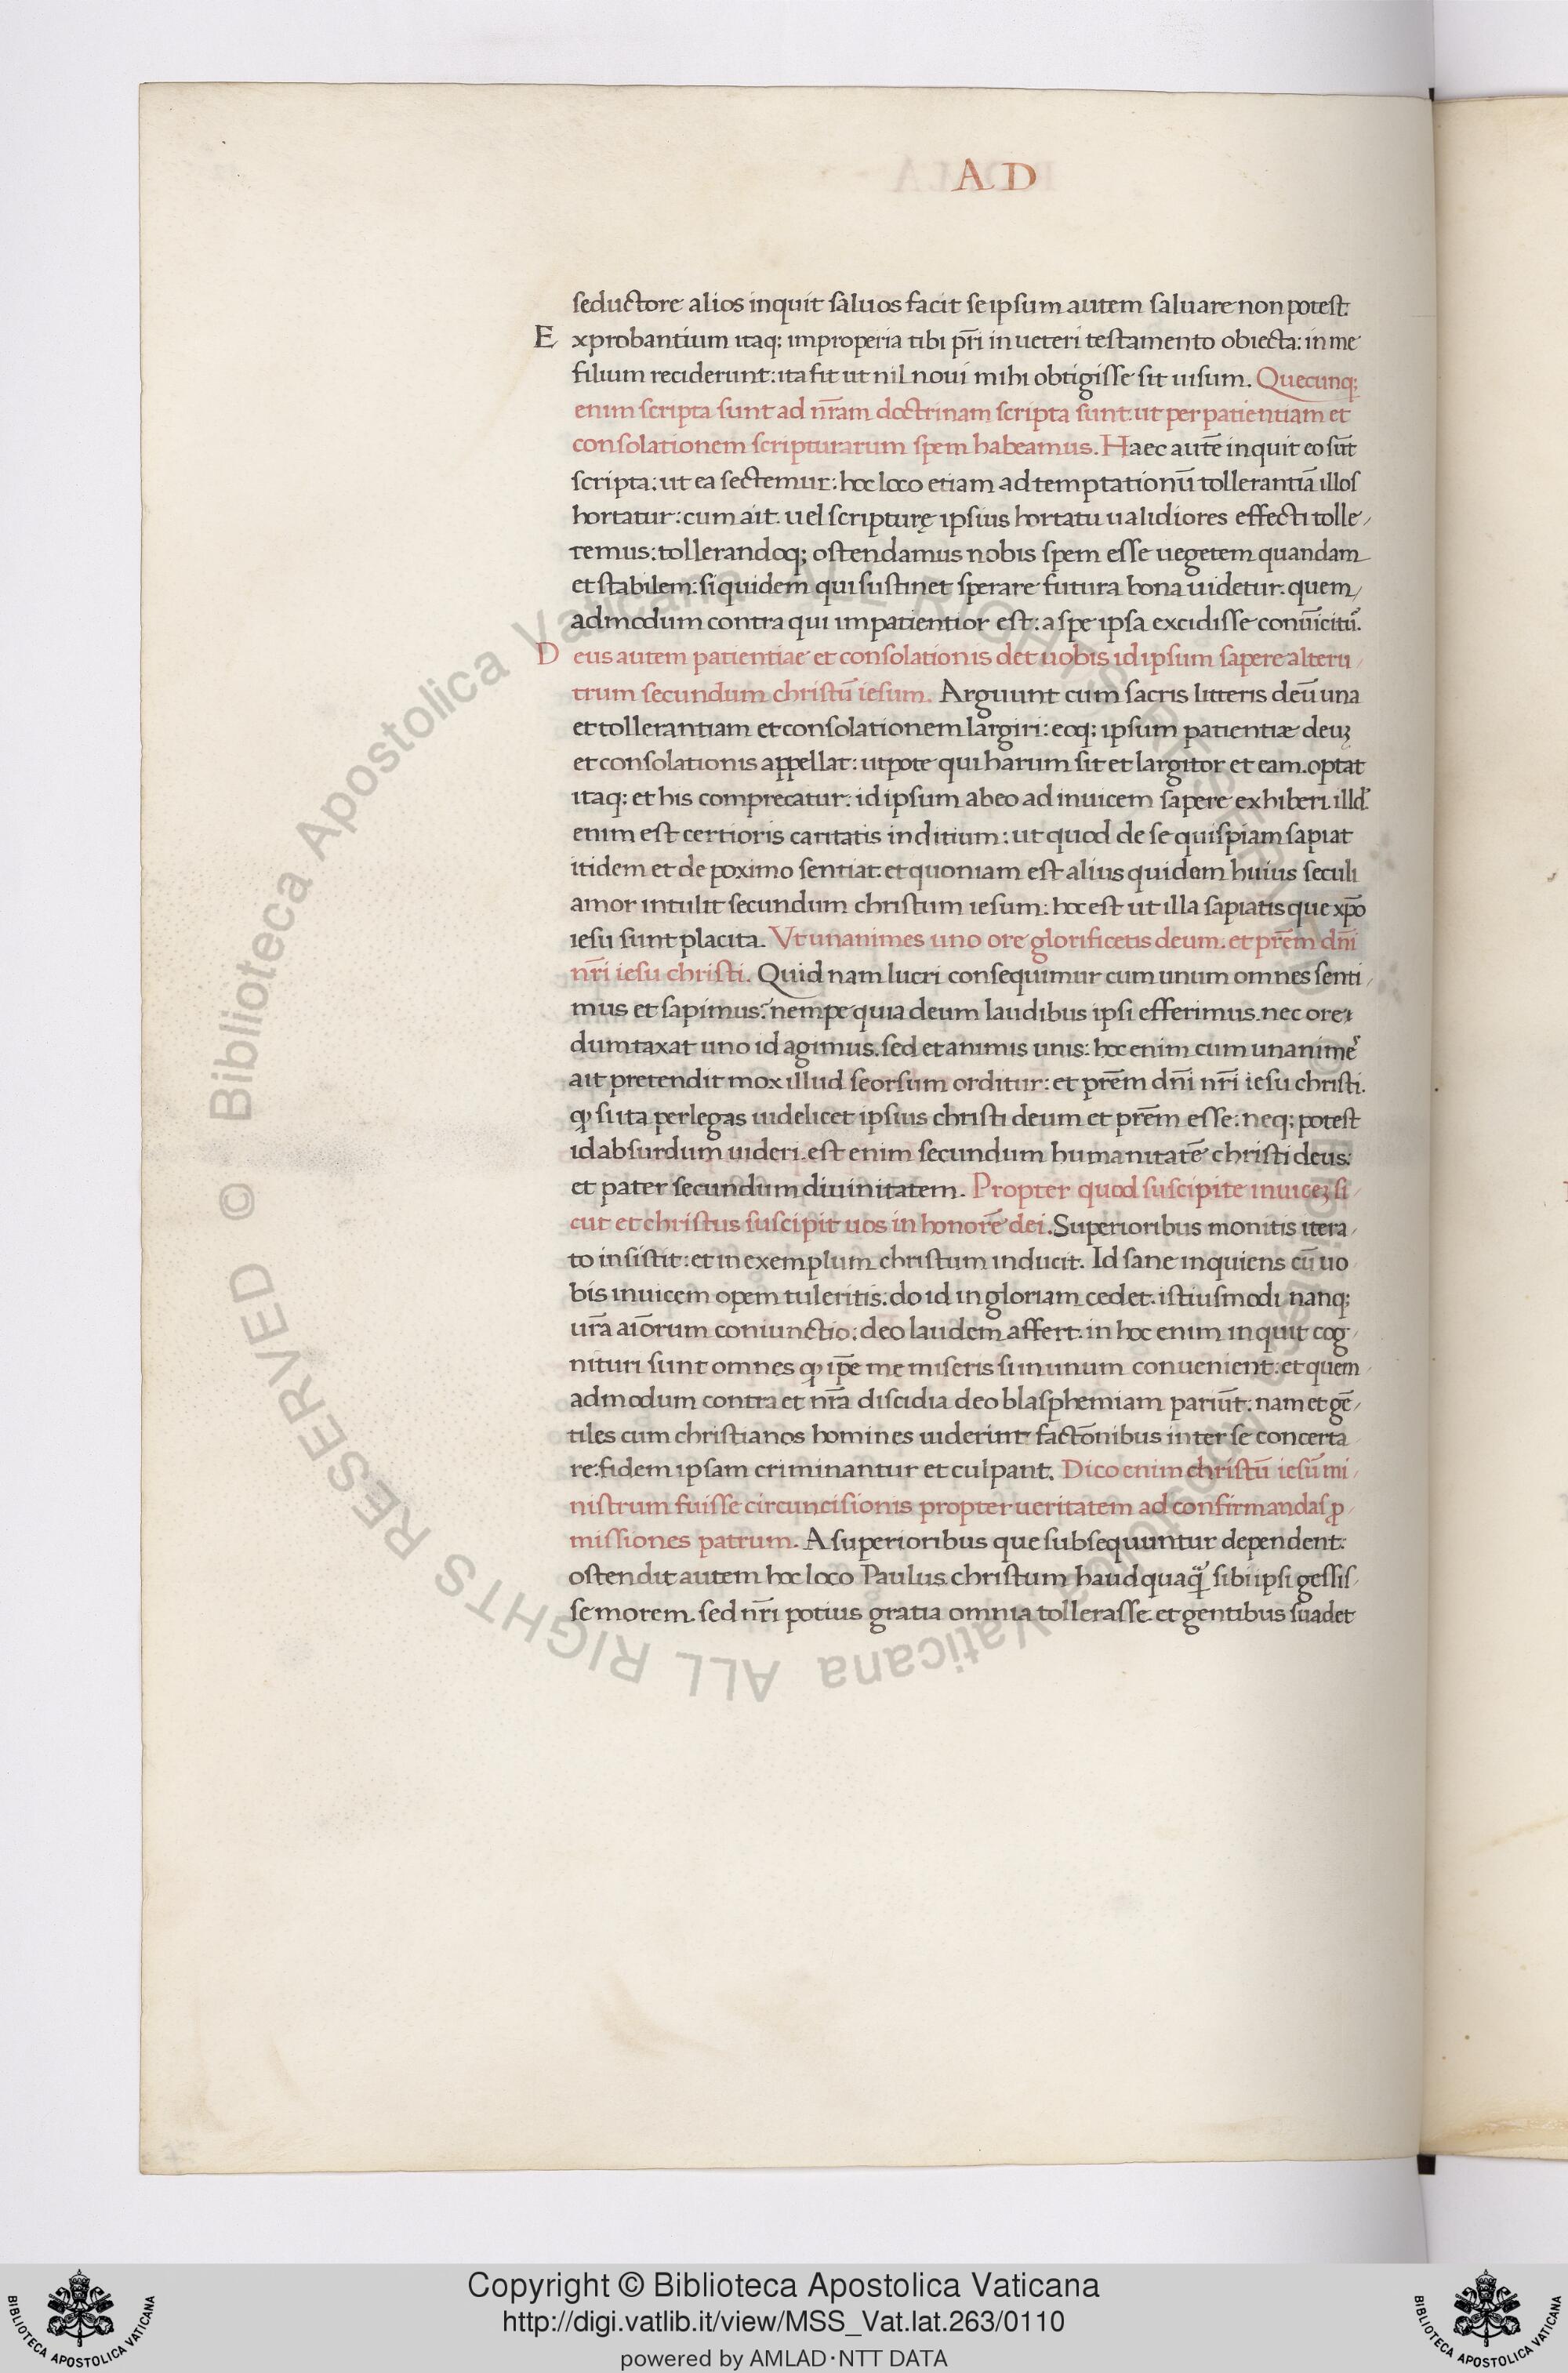 AD
seductore alios inquit saluos facit se ipsum autem saluare non potest.
Exprobantium itaq; improperia tibi pr̄i in ueteri testamento obiecta: in me
filium reciderunt: ita fit ut nil noui mihi obtigisse sit uisum. Quecunq;
enim scripta sunt ad nr̄am doctrinam scripta sunt. ut per patientiam et
consolationem scripturarum spem habeamus. Haec autē inquit eo sūt
scripta: ut ea sectemur: hoc loco etiam ad temptationū tollerantiā illos
hortatur: cum ait. uel scripturę ipsius hortatu ualidiores effecti tolle/
remus: tollerandoq; ostendamus nobis spem esse uegetem quandam
et stabilem: siquidem qui sustinet sperare futura bona uidetur. quem/
admodum contra qui impatientior est: a spe ipsa excidisse conuīcitur̃.
Deus autem patientiae et consolationis det uobis id ipsum sapere alteru/
trum secundum christū iesum. Arguunt cum sacris litteris deū una
et tollerantiam et consolationem largiri: eoq; ipsum patientiæ deuȝ
et consolationis appellat: utpote qui harum sit et largitor et eam. optat
itaq; et his comprecatur. id ipsum ab eo ad inuicem sapere exhiberi. illd̃
enim est certioris caritatis inditium: ut quod de se quispiam sapiat
itidem et de poximo sentiat. et quoniam est alius quidam huius seculi
amor intulit secundum christum iesum: hoc est ut illa sapiatis que xp̄o
iesu sunt placita. Vt unanimes uno ore glorificetis deum. et pr̄em dn̄i
nr̄i iesu christi. Quid nam lucri consequimur cum unum omnes senti/
mus et sapimus? nempe quia deum laudibus ipsi efferimus. nec ore
dumtaxat uno id agimus. sed et animis unis: hoc enim cum unanimẽ
ait pretendit mox illud seorsum orditur: et pr̄em dn̄i nr̄i iesu christi.
qͥ si ita perlegas uidelicet ipsius christi deum et pr̄em esse: neq; potest
id absurdum uideri. est enim secundum humanitatē christi deus:
et pater secundum diuinitatem. Propter quod suscipite inuiceȝ si/
cut et christus suscipit uos in honorē dei. Superioribus monitis itera/
to insistit: et in exemplum christum inducit. Id sane inquiens cū uo
bis inuicem opem tuleritis: do id in gloriam cedet. istiusmodi nanq;
ur̄a aīorum coniunctio: deo laudem affert. in hoc enim inquit cog/
nituri sunt omnes qͥ ip̄e me miseris si in unum conuenient: et quem/
admodum contra et nr̄a discidia deo blasphemiam pariūt: nam et gē/
tiles cum christianos homines uiderint factōnibus inter se concerta
re: fidem ipsam criminantur et culpant. Dico enim christū iesū mi/
nistrum fuisse circuncisionis propter ueritatem ad confirmandas ꝓ/
missiones patrum. A superioribus que subsequuntur dependent:
ostendit autem hoc loco Paulus christum haud quaq̃ sibi ipsi gessis/
se morem. sed nr̄i potius gratia omnia tollerasse. et gentibus suadet
© Biblioteca Apostolica Vaticana ALL RIGHTS RESERVED
Copyright © Biblioteca Apostolica Vaticana
http://digi.vatlib.it/view/MSS_Vat.lat.263/0110
powered by AMLAD·NTT DATA
BIBLIOTECA APOSTOLICA VATICANA
BIBLIOTECA APOSTOLICA VATICANA